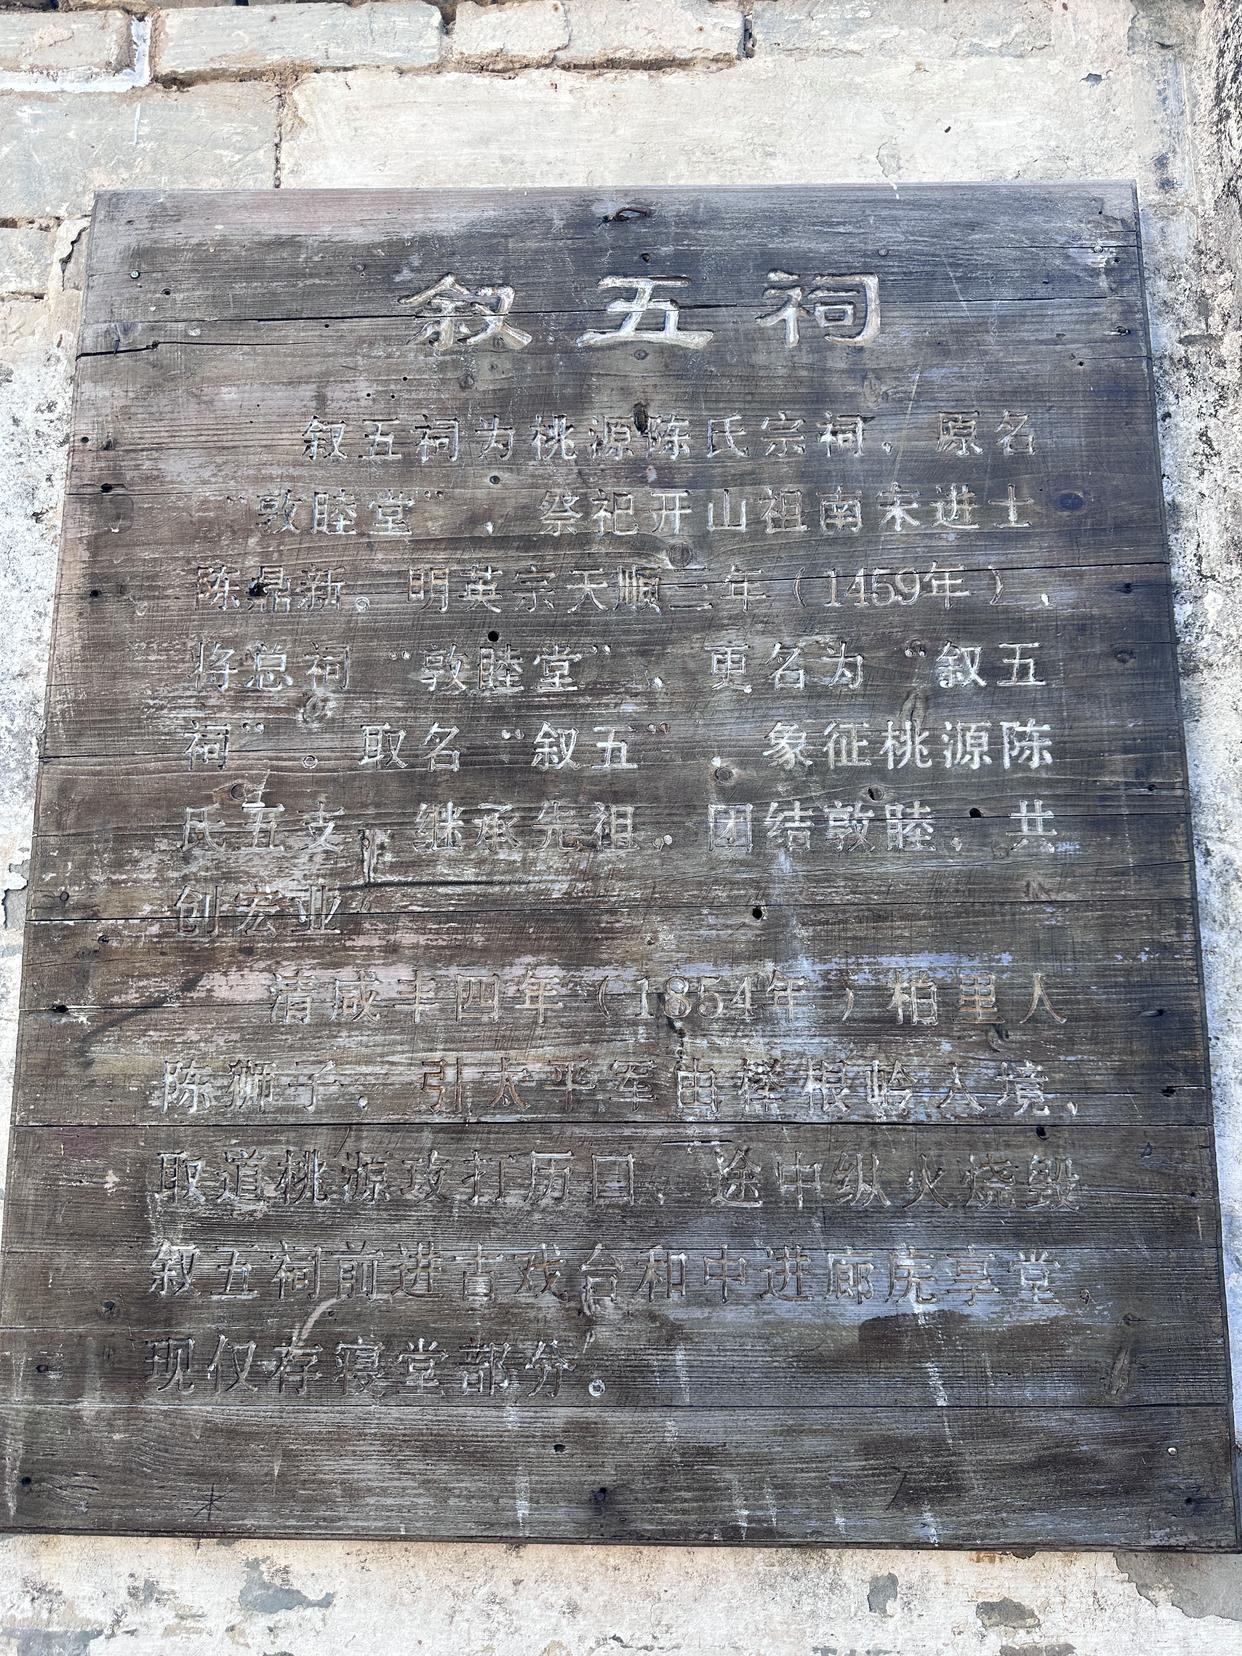 叙五祠
叙五祠为桃源陈氏宗祠，原名
“敦睦堂”，祭祀开山祖南宋进士
陈鼎新。明英宗天顺三年（1459年），
将总祠“敦睦堂”，更名为“叙五
祠”。取名“叙五”，象征桃源陈
氏五支，继承先祖，团结敦睦，共
创宏业
清咸丰四年（1854年）柏里人
陈狮子，引太平军由榉根岭入境，
取道桃源攻打历口，途中纵火烧毁
叙五祠前进古戏台和中进廊庑享堂，
现仅存寝堂部分。